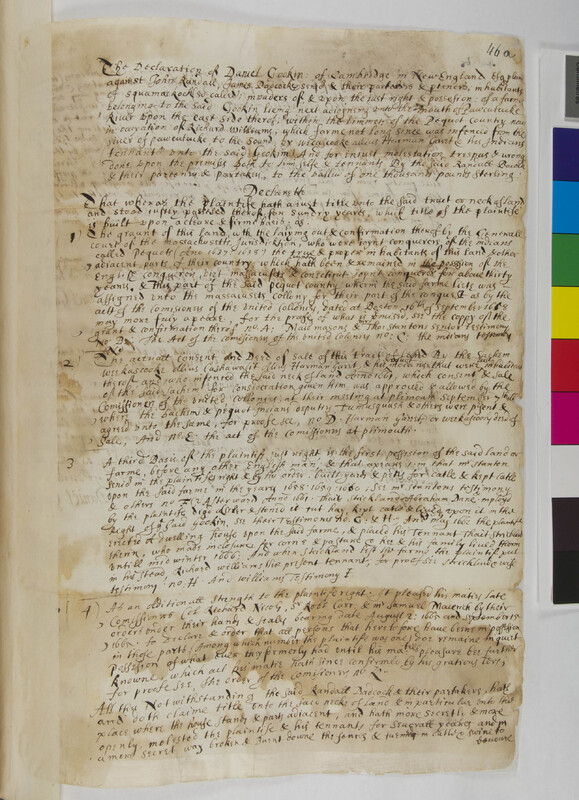 460
The Declaration of Daniel Gookin, of Cambridge in New-England Esq plant
against John Randall, James Badcocke senior & their partakers &, inhabitants
of squamacock so called; invaders of & upon the just right & possession of a farme
belonging to the said Gookin lieing next adioyning unto the mouth of Pawcatucke
River upon the east side therof, within the limmits of the Pequot Country now
in occupation of Richard Williams, which farme not long since was infenced from the
River of pawcatucke to the sound by wecascocke alius Hurman Garet & his Indians
tennants unto the said Gookin; And for iniust molestation, trespas & wrong
don, upon the premises both to him selfe & tennants By the said Randall Badcock
& their partners & partaken, to the vallue of one thousands pounds sterling.
Declareth
That wheras the plaintife hath a just title unto the said tract or neck of land
and stood justly possesed therof for sundry yeares, which title of the plaintife
is built upon a cleare & firme basis: as
1 The graunt of this land with the laying out & confirmation therof by the Generall
court of the massachusetts Jurisdiction, who were ioynt conquerors of the Indians
called Pequot (Anno 1637) the true & proper inhabitants of this land & other
adiacent parts of their country; which hath been & remained in the possesion of the
English conquerors, viz: massachusetts & conecticot ioynt conquerors for about thirty
yeares, & this part of the said pequot country wherin the said farme lieth was
assigned unto the massachusets collony for their part of the conquest as by the
act of the comisioners of the United collonies, dated at Boston, of September 1658
may more fully apeare: for the proofe of what is premised, see the coppy of the
grant & confirmation therof no: A: Maior masons & Thos stantons senior Testimony
no B. The Act of the comisioners of the united colonies no: C. the indians testimony
2 The actuall consent and Deed of sale of this tract of land By the sachem
weekascooke alius Cashawaset alius Harman Garet, & his indians that were inhabitants
therof and who infenced the said neck of land Anno 1661, which consent & sale
of the said sachim for consideration given him was approved & allowed by the
Comissioners of the United collonies at their meeting at plimouth September
where the sachims & piquit indians deputy & others were present &
agreed unto the same, for proofe see, no D. Harman Garret or weekascooke deed of
sale, And no E: the act of the comisioners at plimouth.
3 A third Basis of the plaintifs just right is the first possession of the said land or
farme before any other English man; & that in that mr Stanton
senior in the plaintifs right & by his order, built yards & pens for catle & kept catle
upon the said farme in the yeares 1658 1659 1660. see mr stantons testimony
& others no F: Afterward Anno 1661 Thait Strickland & Abraham Dane, imployed
by the plaintife digg & stoned it cut hay, kept catle & lived upon it in the
Right of said Gookin, see their Testimonies no: G, & H. And may 1662 the plantife
erected a dwelling house upon the said farme, & placed his Tennant Thait Strickland
therin, who made inclosure for corne & pasture & hee & his family lived theron
untill mid winter 1663. And when Strickland left the farme the plaintife put
in his stead, Richard williams the present tennant, for proof see stricklans wife
testimony no. H. And williams Testimony I
4 As an additionall strength to the plaintifs right: It pleased his maties late
Comissioners Col Richard Nicols, Sr Robt Carr, & mr Samuell Maverick by their
orders under their hands & seals bearing date August 2: 1665 and
1665. To Declare & order that all persons that have been in possesion
in those parts (Among which number this plaintife was one) doe remaine in quiet
Possession of what ever they formerly had until his maties pleasure bee further
knowne, which act his matie hath since confirmed by his gratious letters,
for proofe see, The order of the Comisioners no K.
All this Notwithstanding the said Randall Badcock & their partakers, hath
and doth claime title unto the said neck of land & in particular unto the
place where the house stands & parts adjacent, and hath more secretly & more
openly molested the plaintife & his tennants, for severall yeares and in
a more secret way broken & burnt downe the fences & turning in catle & swine to
devoure